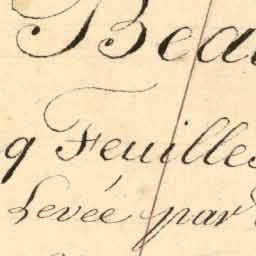 Bea
q Feuilles
Levée par